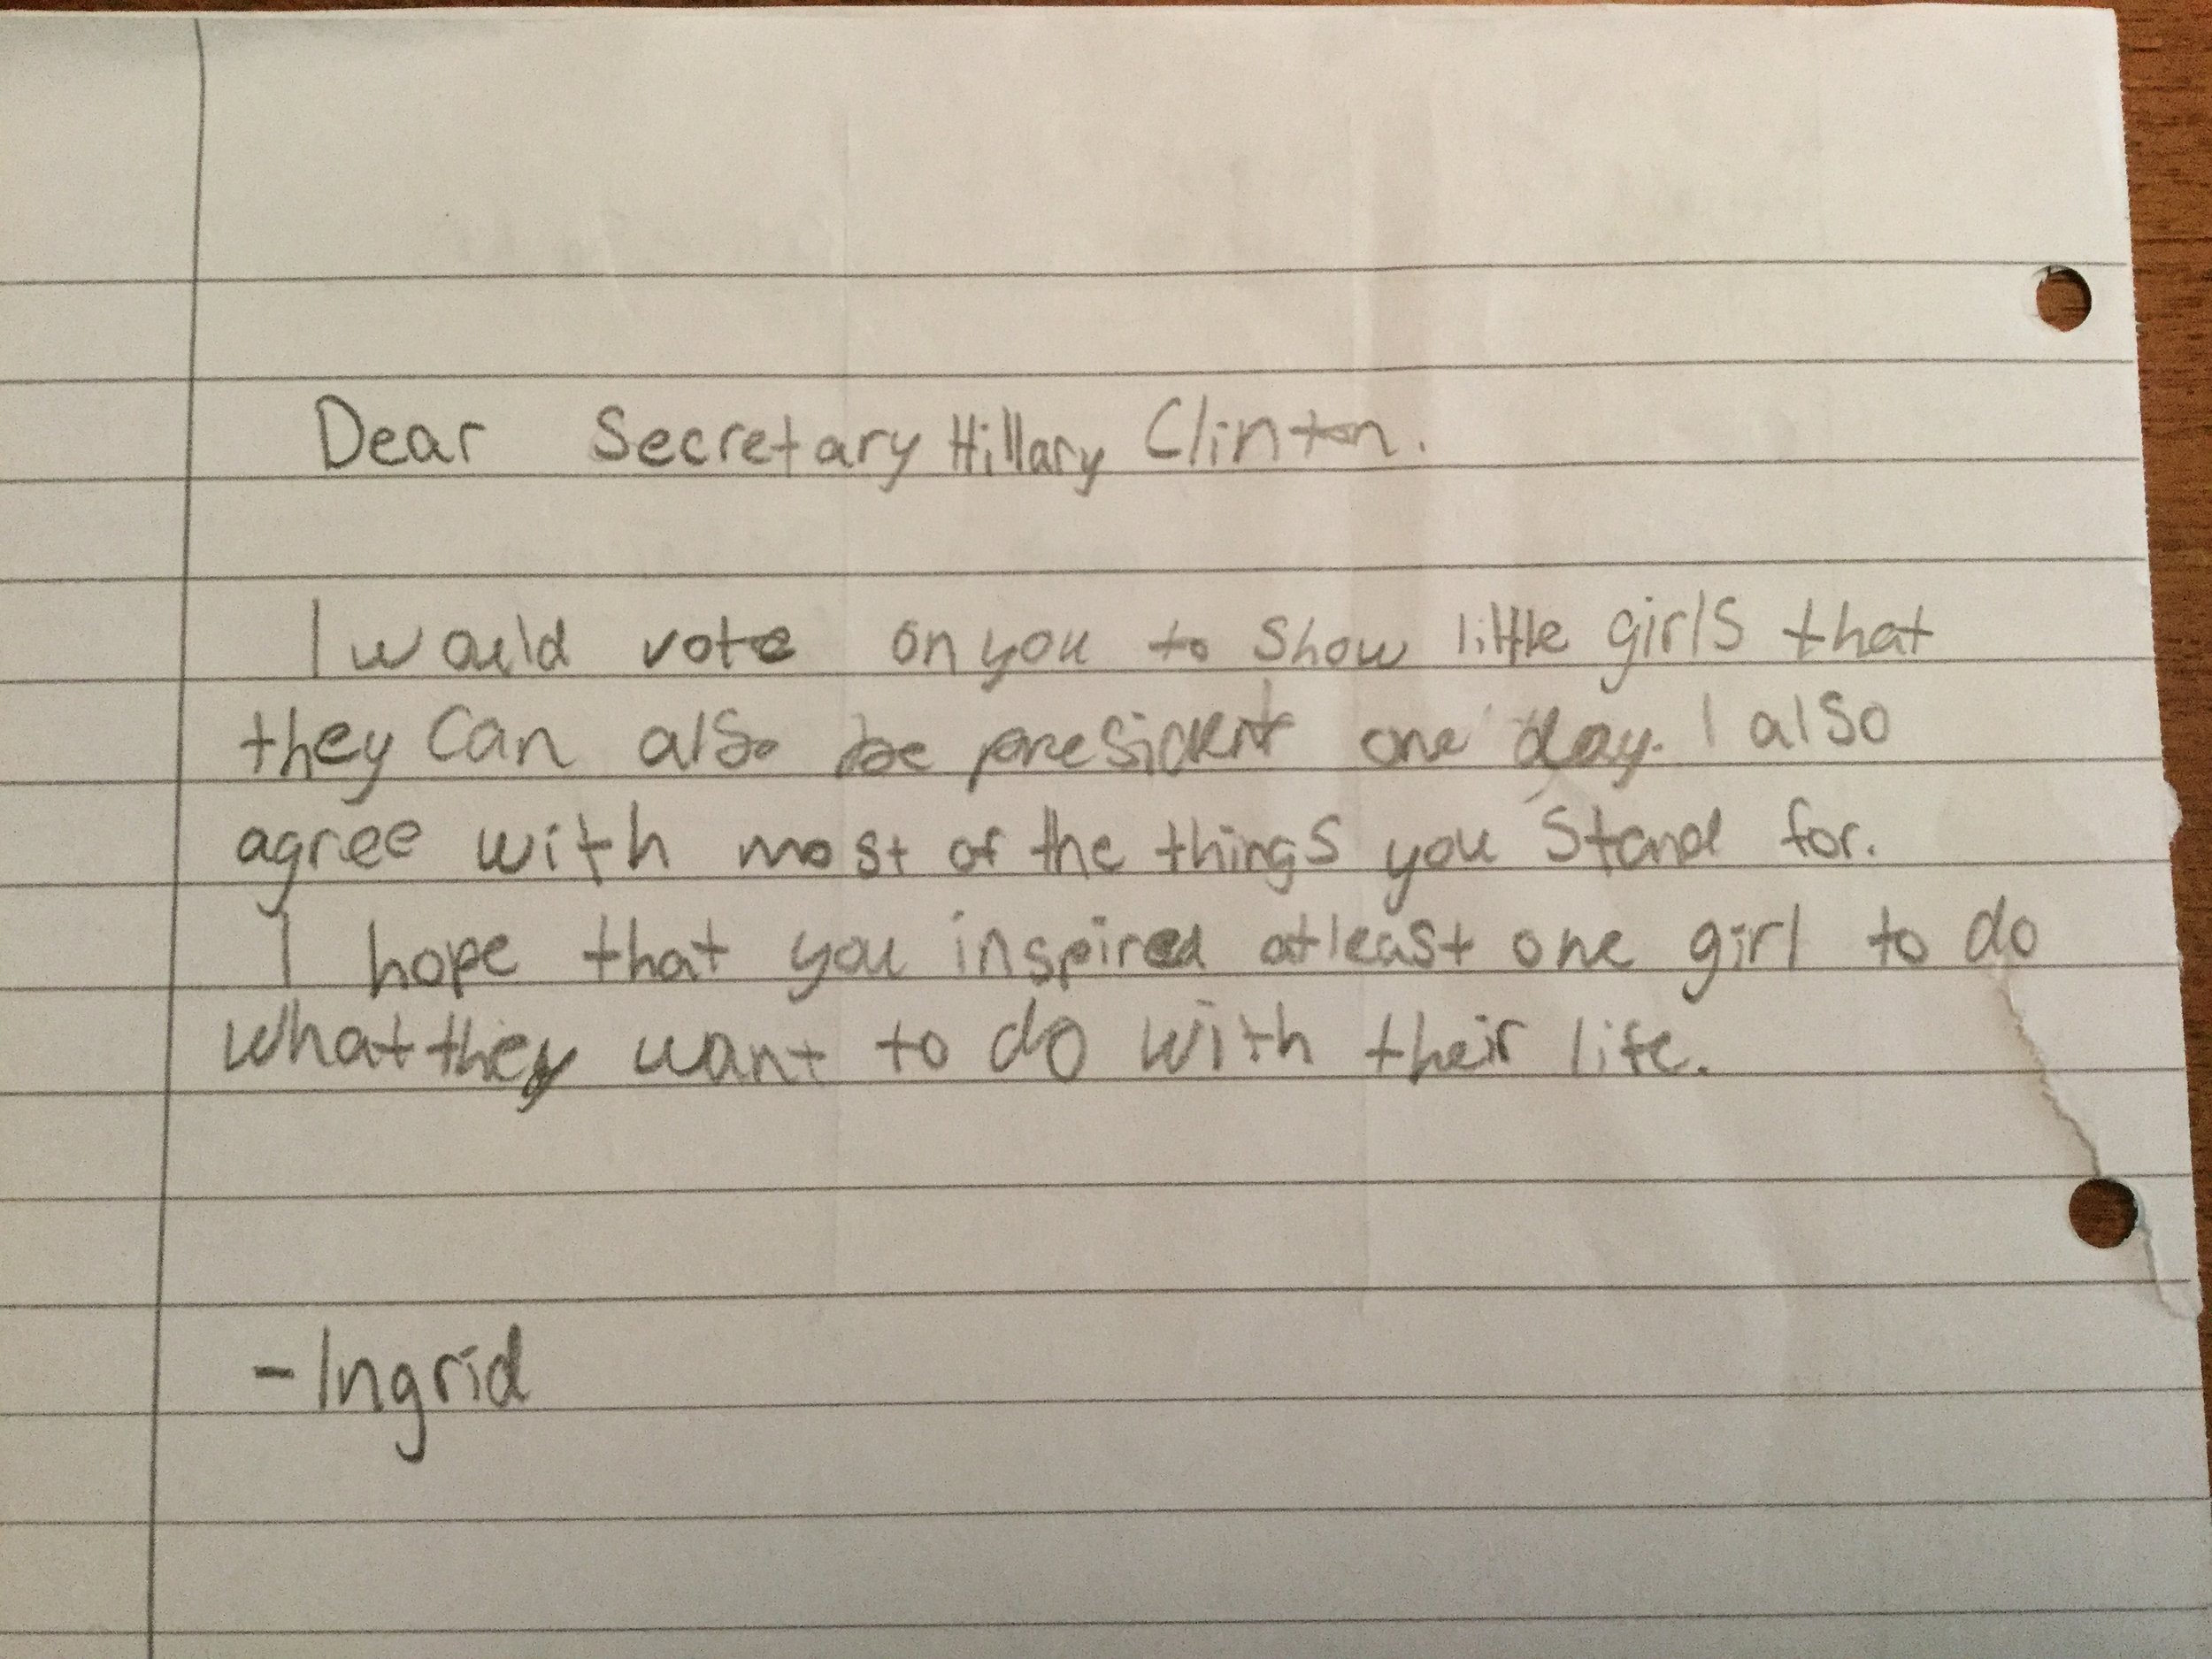 Dear Secretary Hillary Clinton.
I would vote on you to show little girls that
they can also be president one day. I also
agree with most of the things you stand for.
I hope that you inspired atleast one girl to do
what they want to do with their life.
- Ingrid